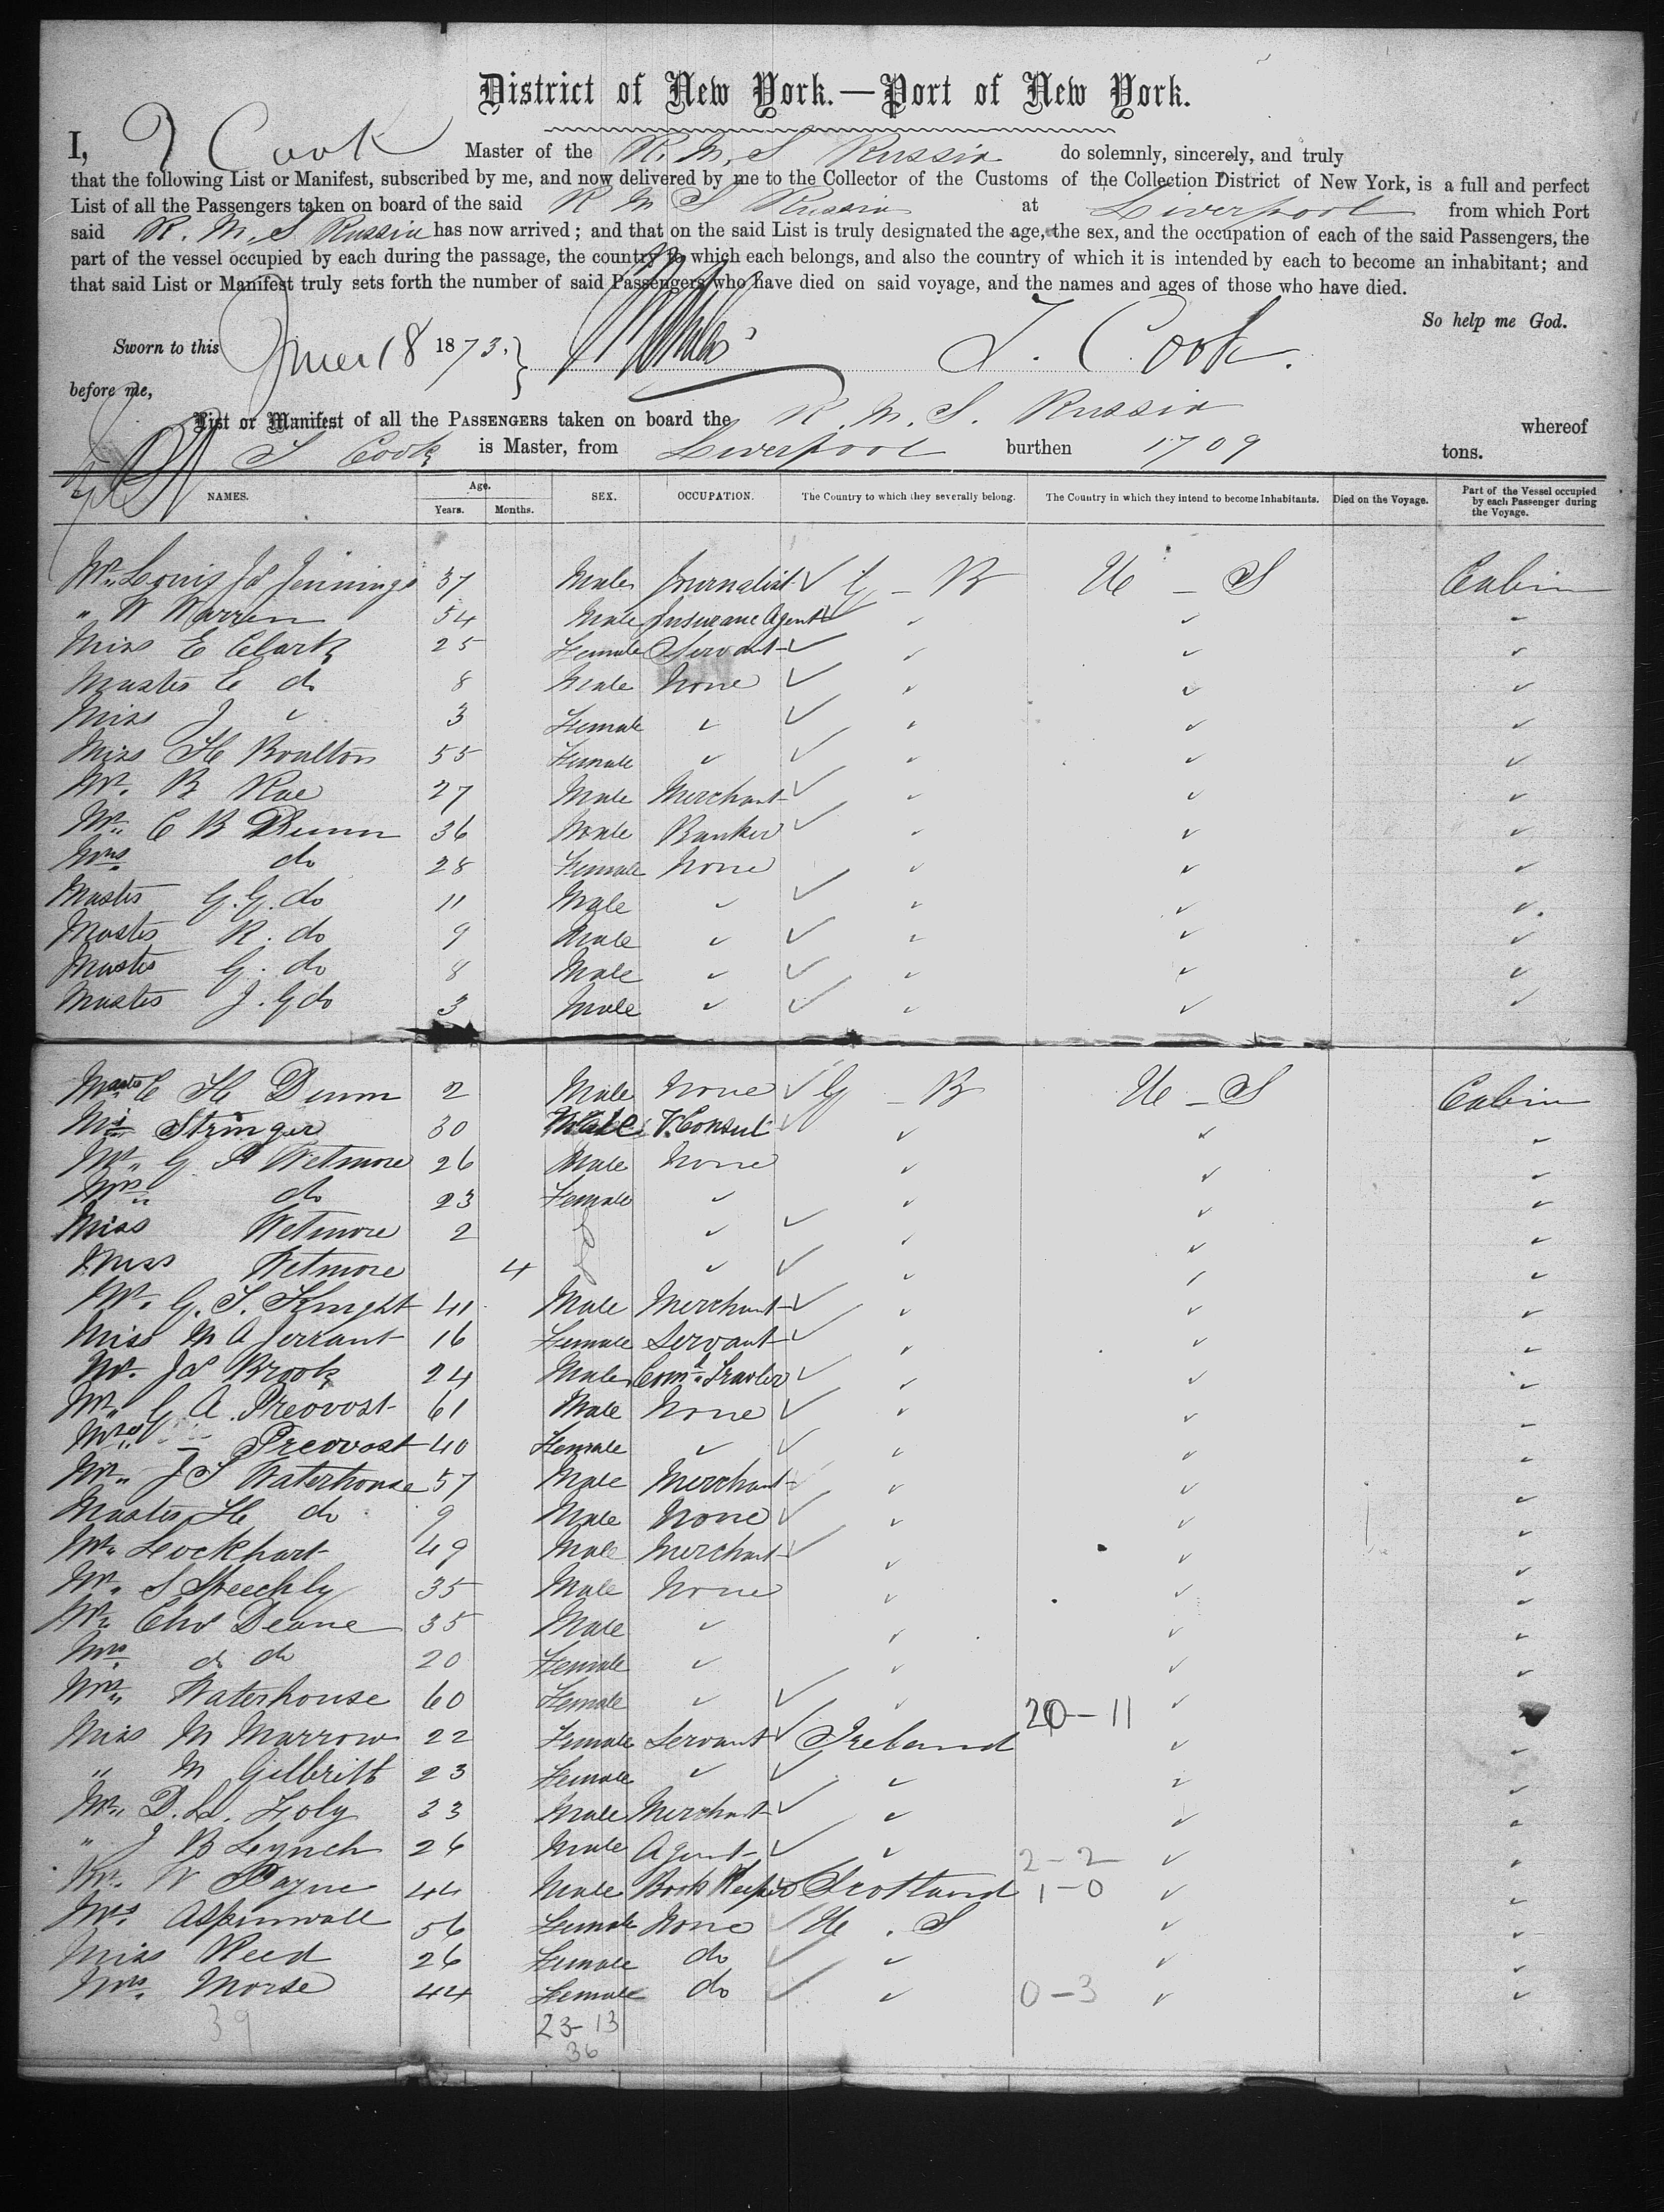 District of New York.—Port of New York.
I, T Cook Master of the R. M. S Russia do solemnly, sincerely, and truly
that the following List or Manifest, subscribed by me, and now delivered by me to the Collector of the Customs of the Collection District of New York, is a full and perfect
List of all the Passengers taken on board of the said R M S Russia at Liverpool from which Port
said R. M. S Russia has now arrived; and that on the said List is truly designated the age, the sex, and the occupation of each of the said Passengers, the
part of the vessel occupied by each during the passage, the country to which each belongs, and also the country of which it is intended by each to become an inhabitant; and
that said List or Manifest truly sets forth the number of said Passengers who have died on said voyage, and the names and ages of those who have died.
So help me God.
Sworn to this June 18 1873. T. Cook.
before me,
List or Manifest of all the PASSENGERS taken on board the R. M. S. Russia whereof
T Cook is Master, from Liverpool burthen 1709 tons.
NAMES. Age. Years. Months. SEX. OCCUPATION. The Country to which they severally belong. The Country in which they intend to become Inhabitants. Died on the Voyage. Part of the Vessel occupied by each Passenger during the Voyage.
Mr. Louis Js Jennings 37 Male Journalist ✓ G - B U - S Cabin
" W Warren 54 Male Insurance Agent ✓ ✓ ✓
Miss E Clark 25 Female Servant ✓ ✓ ✓ ✓
Master E do 8 Male None ✓ ✓ ✓ ✓
Miss J ✓ 3 Female ✓ ✓ ✓ ✓ ✓
Miss H Boulton 55 Female ✓ ✓ ✓ ✓ ✓
Mr. B Rae 27 Male Merchant ✓ ✓ ✓ ✓
Mr. C B Dunn 36 Male Banker ✓ ✓ ✓ ✓
Mrs. do 28 Female None ✓ ✓ ✓
Master G. G. do 11 Male ✓ ✓ ✓ ✓ ✓
Master R. do 9 Male ✓ ✓ ✓ ✓ ✓
Master G. do 8 Male ✓ ✓ ✓ ✓ ✓
Master J. G do 3 Male ✓ ✓ ✓ ✓ ✓
Master C H Dunn 2 Male None ✓ G - B U - S Cabin
Stringer 30 Male V. Consul ✓ ✓ ✓
Mr. G P Wetmore 26 Male None ✓ ✓ ✓
Mrs. do 23 Female ✓ ✓ ✓ ✓
Miss Wetmore 2 ✓ ✓ ✓ ✓ ✓
Miss Wetmore 4 ✓ ✓ ✓ ✓ ✓
Mr. G. T. Knight 41 Male Merchant ✓ ✓ ✓ ✓
Miss M A Jerrant 16 Female Servant ✓ ✓ ✓ ✓
Mr. Js Brook 24 Male Coml. Traveler ✓ ✓ ✓ ✓
Mr. G. A. Preovost 61 Male None ✓ ✓ ✓ ✓
Mrs. Preovost 40 Female ✓ ✓ ✓ ✓ ✓
Mr. J S Waterhouse 57 Male Merchant ✓ ✓ ✓
Master H do 9 Male None ✓ ✓ ✓ ✓
Mr. Lockhart 49 Male Merchant ✓ ✓ ✓ ✓
Mr. S Steechly 35 Male None ✓ ✓ ✓
Mr. Chs Deane 35 Male ✓ ✓ ✓ ✓
Mrs. do do 20 Female ✓ ✓ ✓ ✓
Mrs. Waterhouse 60 Female ✓ ✓ ✓ 20-11 ✓
Miss M Marrow 22 Female Servant ✓ Ireland ✓ ✓
" M Gilbritt 23 Female ✓ ✓ ✓ ✓ ✓
Mr. D. L. Foly 33 Male Merchant ✓ ✓ ✓ ✓
" J B Lynch 26 Male Agent ✓ ✓ 2-2 ✓ ✓
Mr. W Payne 44 Male Book Keeper Scotland 1-0 ✓ ✓
Mrs. Aspinwall 56 Female None ✓ U. S ✓ ✓
Miss Reed 26 Female do ✓ ✓ ✓ ✓
Mrs. Morse 44 Female do ✓ ✓ 0-3 ✓ ✓
39 23-13
36